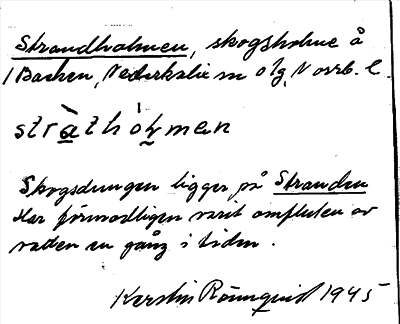 Strandholmen, skogsholme å
Backen, Nederkalix sn o lg, Norrb. l.
stràthólmen
Skogsdungen ligger på Stranden
Har förmodligen varit omfluten av
vatten en gång i tiden.
Kerstin Rönnquist 1945